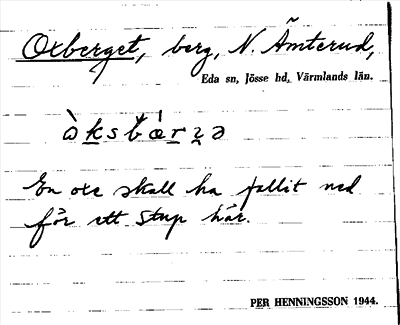 Oxberget, berg, N. Ämterud,
Eda sn, Jösse hd, Värmlands län.
En oxe skall ha fallit ned
för ett stup här.
PER HENNINGSSON 1944.